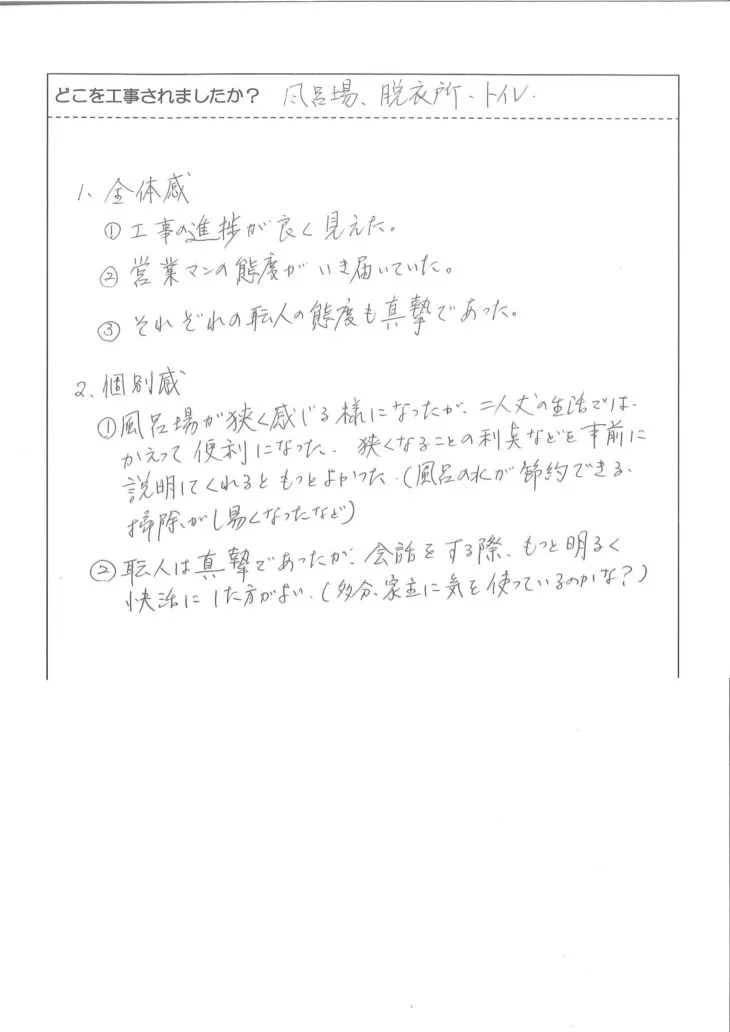 どこを工事されましたか? 風呂場、脱衣所、トイレ.
1、全体感
① 工事の進捗が良く見えた。
② 営業マンの態度がいき届いていた。
③ それぞれの職人の態度も真摯であった。
2、個別感
① 風呂場が狭く感じる様になったが、二人丈の生活では、
かえって便利になった. 狭くなることの利点などを事前に
説明してくれるともっとよかった.(風呂の水が節約できる、
掃除がし易くなったなど)
② 職人は真摯であったが、会話をする際、もっと明るく
快活にした方がよい.(多分、家主に気を使っているのかな?)